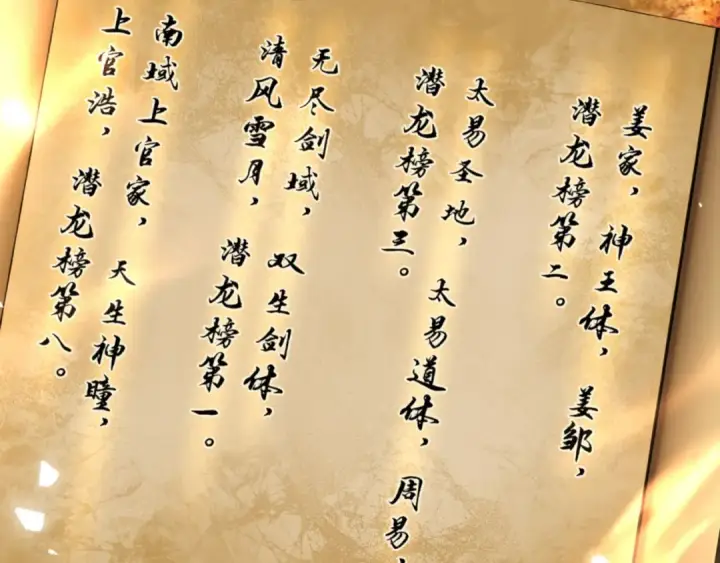 姜家，神王体，姜邹，
潜龙榜第二。
太易圣地，太易道体，周易，
潜龙榜第三。
无尽剑域，双生剑体，
清风雪月，潜龙榜第一。
南域上官家，天生神瞳，
上官浩，潜龙榜第八。